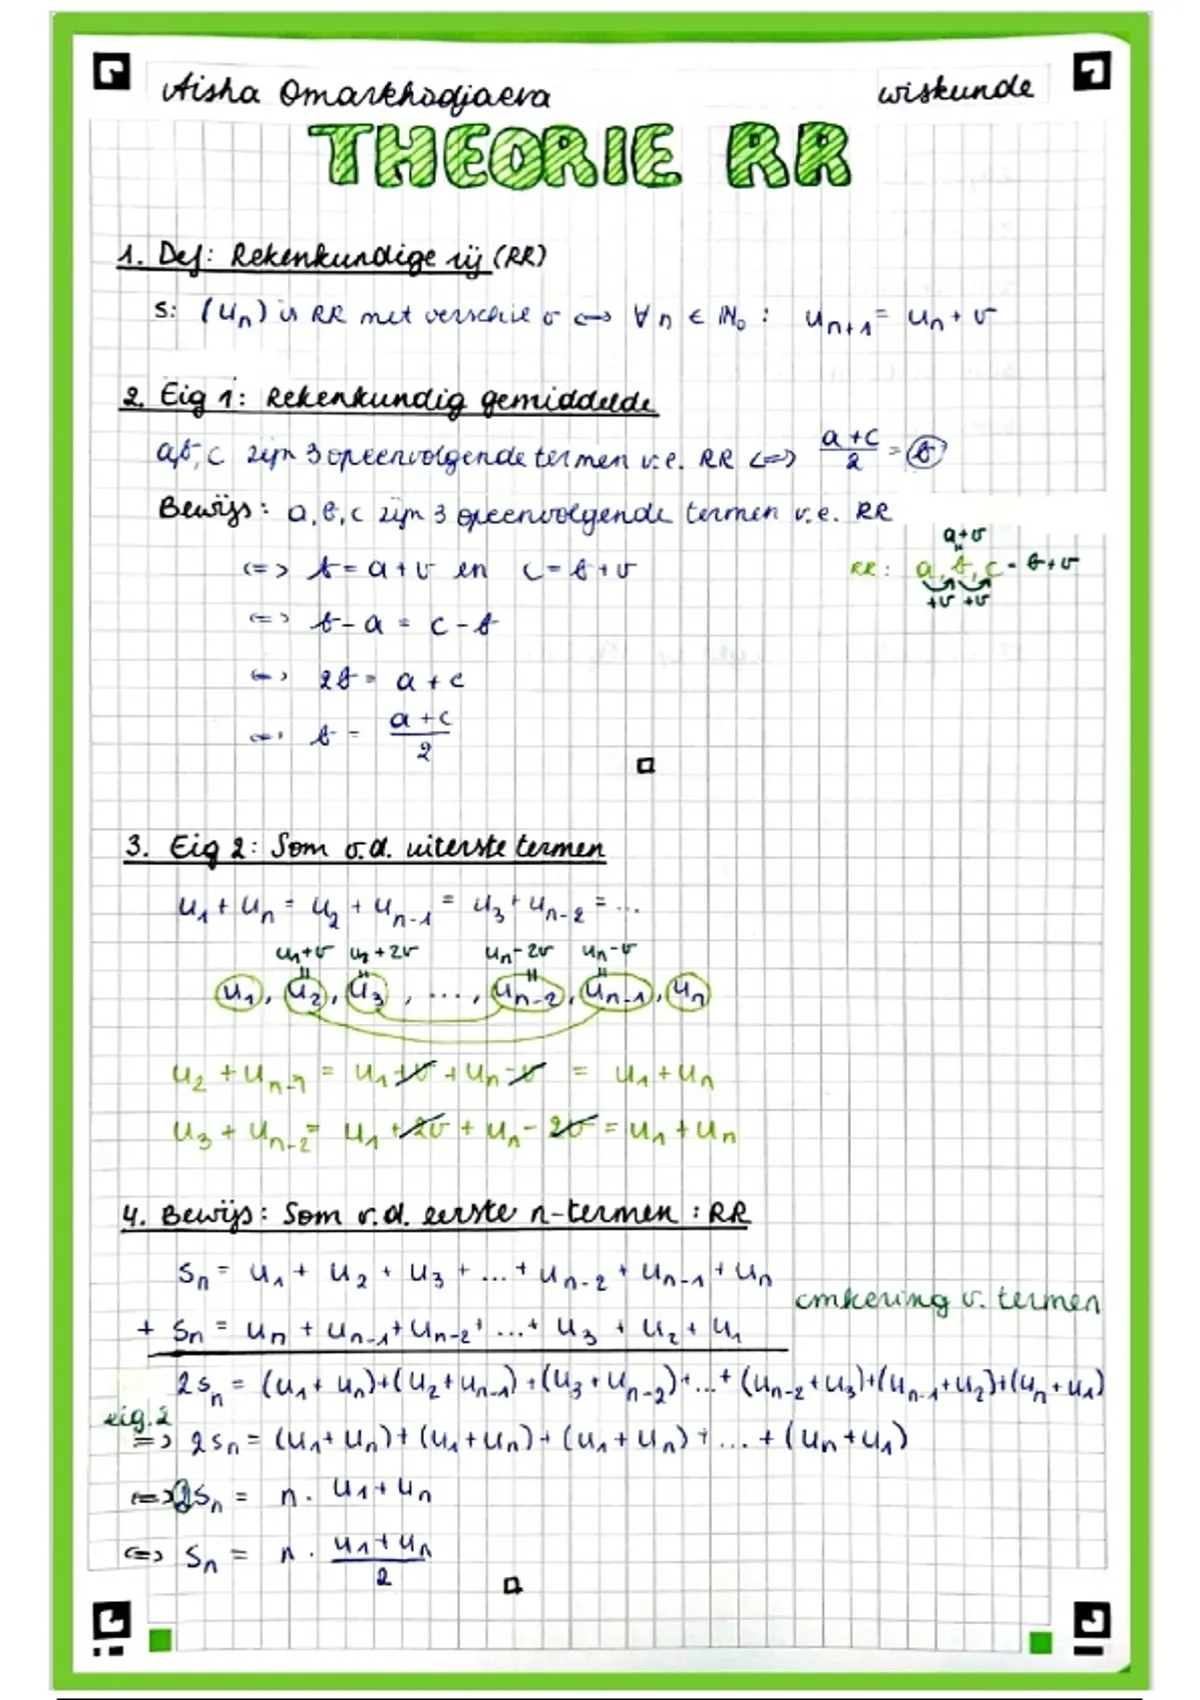 Aisha Omarkhodjaeva wiskunde
THEORIE RR
1. Def: Rekenkundige rij (RR)
S: (uₙ) is RR met verschil v ⟺ ∀ n ∈ ℕ₀ : uₙ₊₁ = uₙ + v
2. Eig 1: Rekenkundig gemiddelde
a, b, c zijn 3 opeenvolgende termen v.e. RR ⟺ (a + c)/2 = b
Bewijs: a, b, c zijn 3 opeenvolgende termen v.e. RR
a+v
⟺ b = a + v en c = b + v RR: a, b, c = b + v
+v +v
⟺ b - a = c - b
⟺ 2b = a + c
⟺ b = (a + c)/2
□
3. Eig 2: Som v.d. uiterste termen
u₁ + uₙ = u₂ + uₙ₋₁ = u₃ + uₙ₋₂ = ...
u₁+v u₁+2v uₙ-2v uₙ-v
u₁, u₂, u₃, ..., uₙ₋₂, uₙ₋₁, uₙ
u₂ + uₙ₋₁ = u₁ + v + uₙ - v = u₁ + uₙ
u₃ + uₙ₋₂ = u₁ + 2v + uₙ - 2v = u₁ + uₙ
4. Bewijs: Som v.d. eerste n-termen : RR
Sₙ = u₁ + u₂ + u₃ + ... + uₙ₋₂ + uₙ₋₁ + uₙ
omkering v. termen
+ Sₙ = uₙ + uₙ₋₁ + uₙ₋₂ + ... + u₃ + u₂ + u₁
2Sₙ = (u₁ + uₙ) + (u₂ + uₙ₋₁) + (u₃ + uₙ₋₂) + ... + (uₙ₋₂ + u₃) + (uₙ₋₁ + u₂) + (uₙ + u₁)
eig. 2
⟹ 2Sₙ = (u₁ + uₙ) + (u₁ + uₙ) + (u₁ + uₙ) + ... + (uₙ + u₁)
⟺ 2Sₙ = n · u₁ + uₙ
⟺ Sₙ = n · (u₁ + uₙ)/2
□